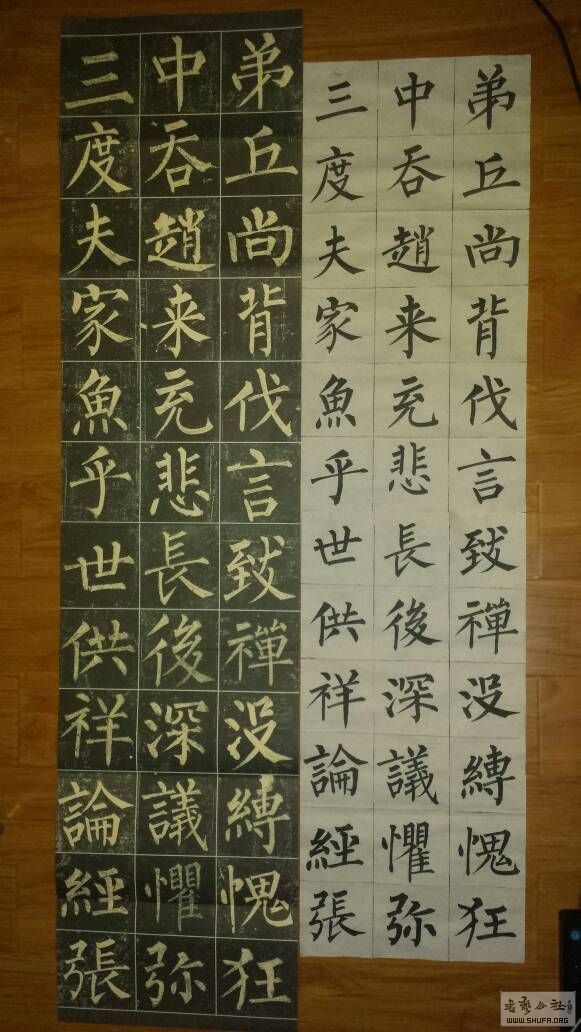 弟丘尚背伐言致禪没縛愧狂
中吞趙来充悲長後深議懼弥
三度夫家魚乎世供祥論經張
弟丘尚背伐言致禪没縛愧狂
中吞趙来充悲長後深議懼弥
三度夫家魚乎世供祥論經張
WWW.SHUFA.ORG